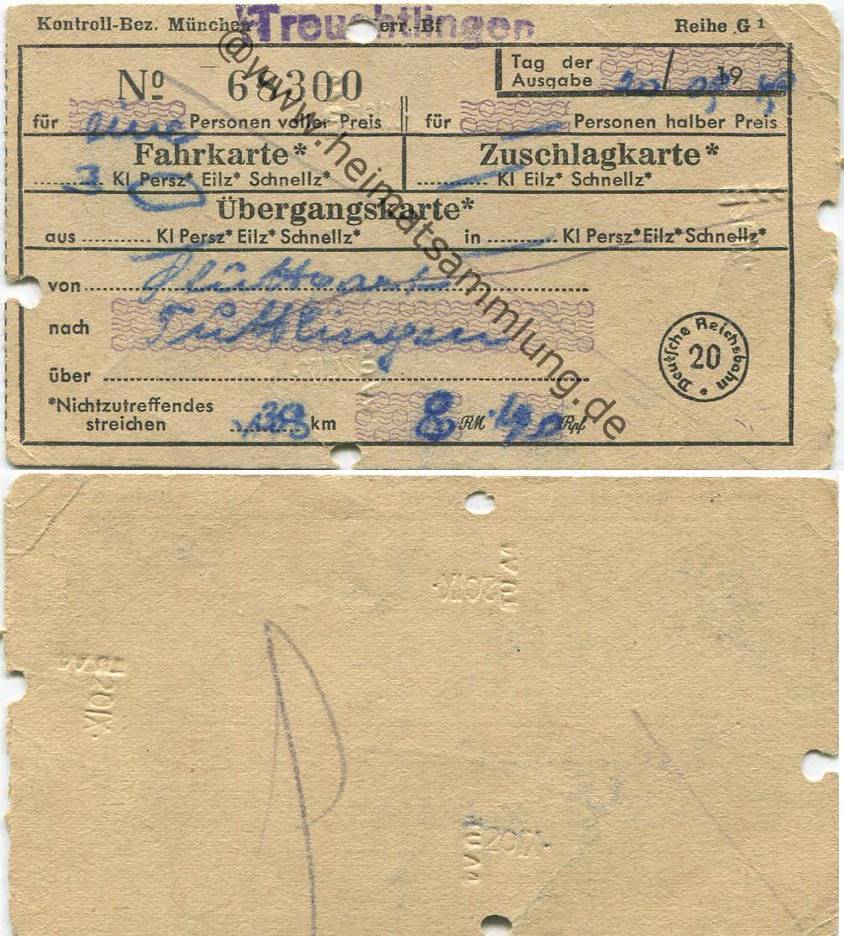 Kontroll-Bez. München Treuchtlingen Verr.-Bf Reihe G 1
Tag der Ausgabe 20/ 19
Nº 68300
für eine Personen voller Preis für Personen halber Preis
Fahrkarte* Zuschlagkarte*
3 Kl Persz* Eilz* Schnellz* Kl Eilz* Schnellz*
Übergangskarte*
aus Kl Persz* Eilz* Schnellz* in Kl Persz* Eilz* Schnellz*
von Stuttgart
nach Tuttlingen
über
Deutsche Reichsbahn 20
*Nichtzutreffendes
streichen km 8 RM 40 Rpf
@www.heimatsammlung.de